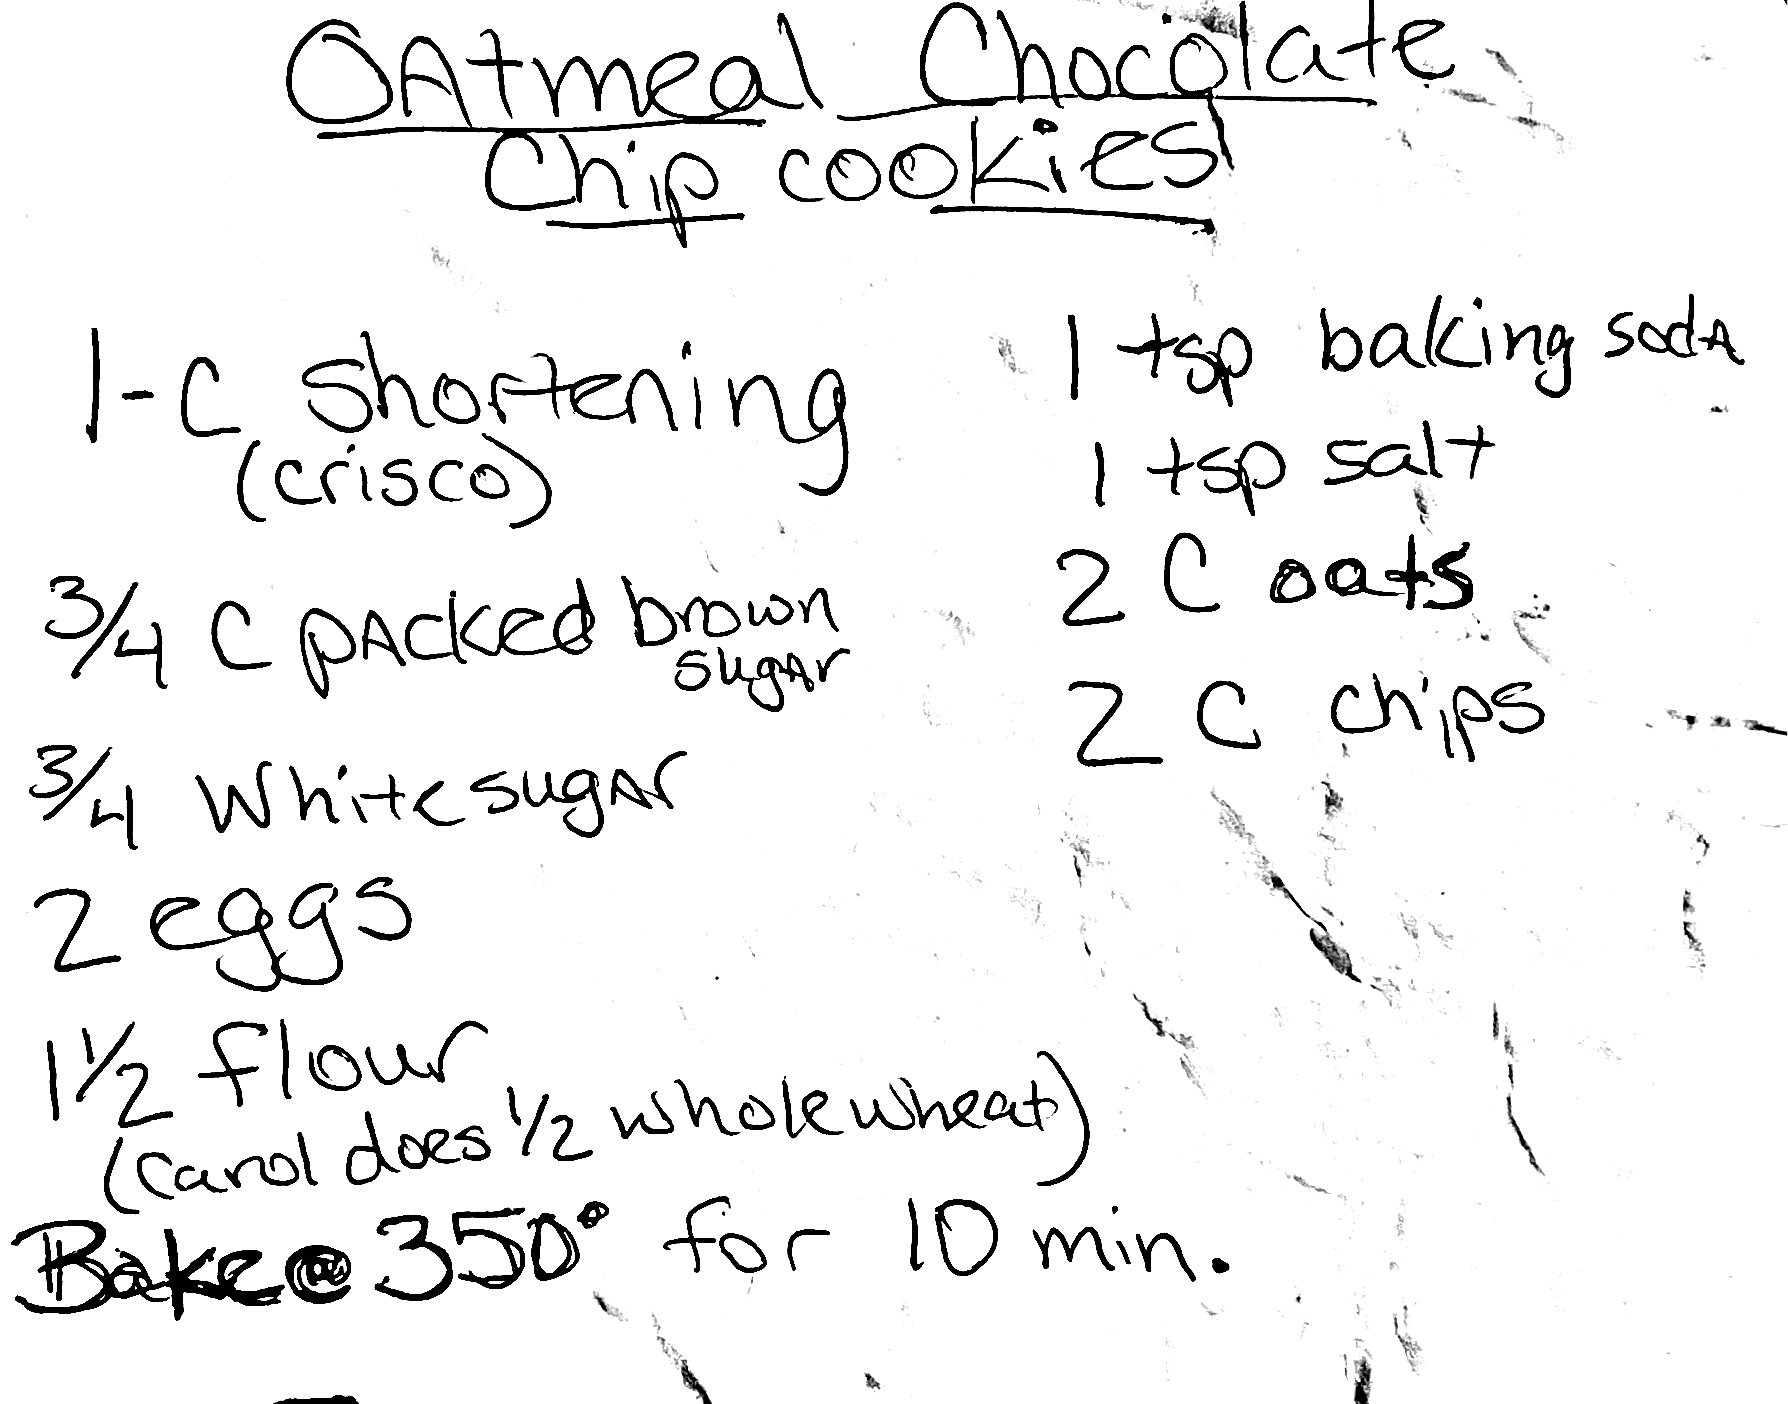 OAtmeal Chocolate
Chip cookies
1-C shortening
(crisco)
3/4 C pAcked brown
sugAr
3/4 White sugAr
2 eggs
1 1/2 flour
(Carol does 1/2 whole wheat)
1 tsp baking sodA
1 tsp salt
2 C oats
2 C chips
Bake @ 350° for 10 min.